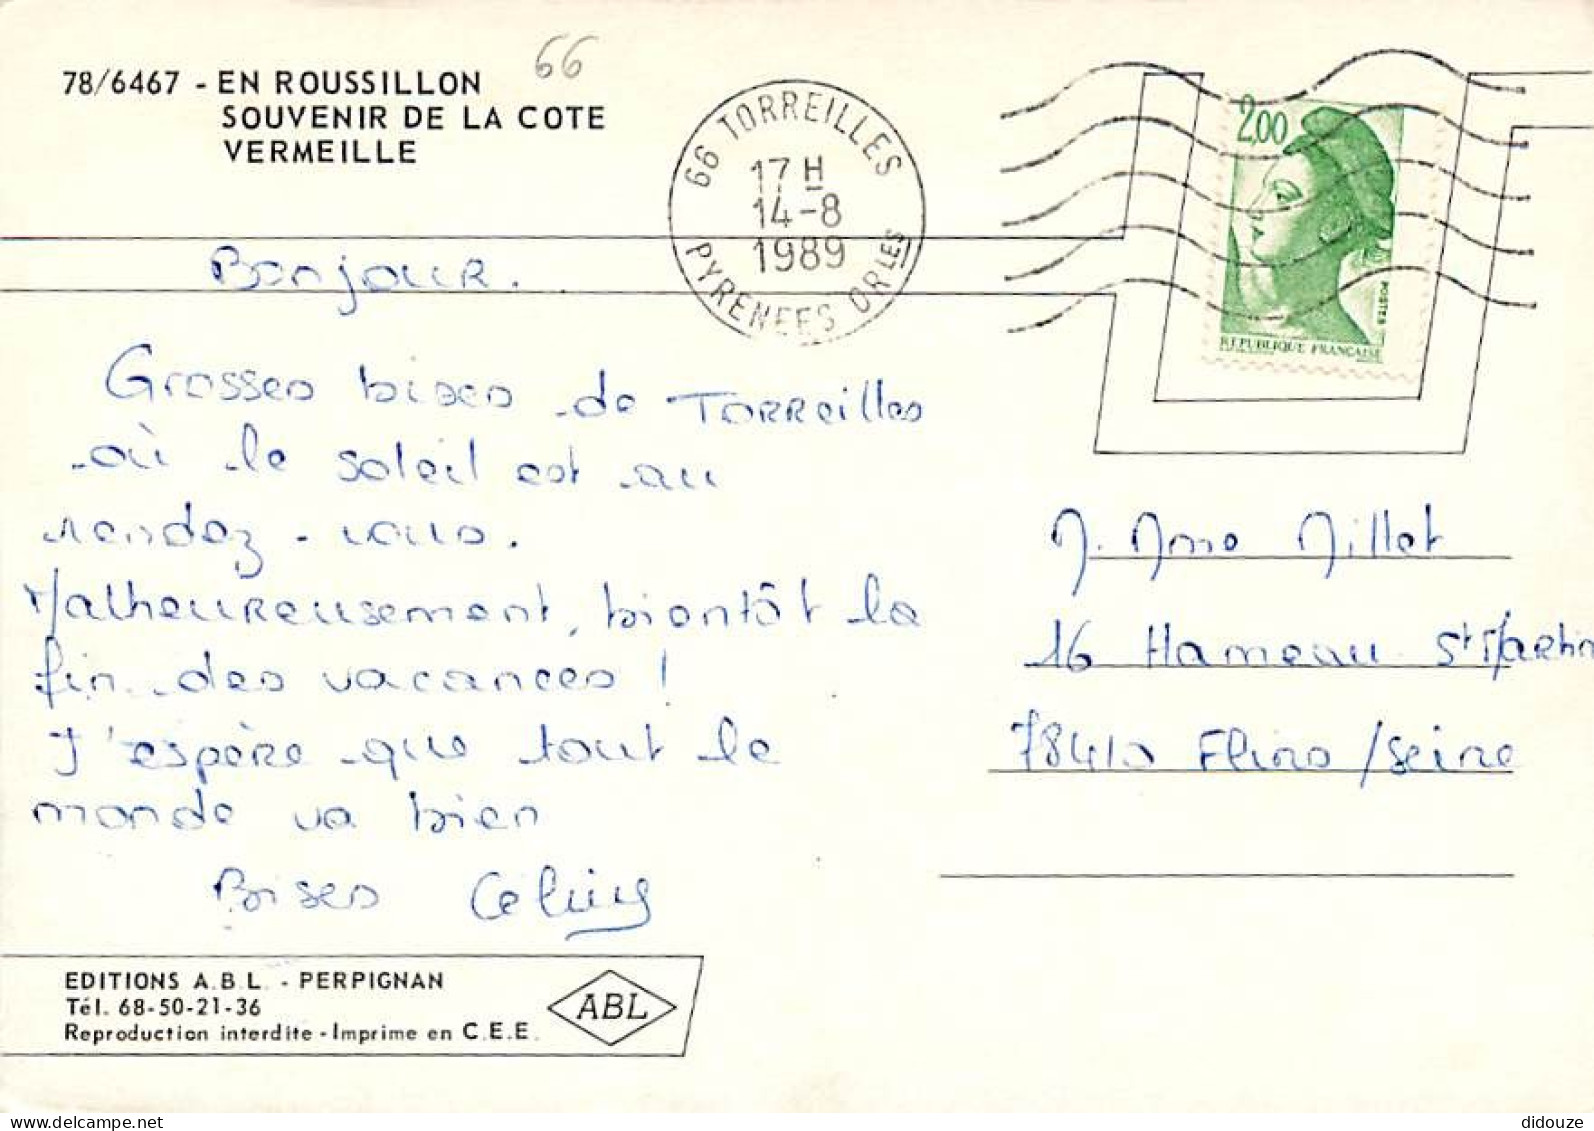 66
78/6467 - EN ROUSSILLON
SOUVENIR DE LA COTE
VERMEILLE
66 TORREILLES
17 H
14-8
1989
PYRENEES ORLES
2,00
POSTES
REPUBLIQUE FRANÇAISE
Bonjour.
Grosses bises de Torreilles
où le soleil est au
rendez-vous.
Malheureusement, bientôt la
fin des vacances !
J'espère que tout le
monde va bien
Bises
M. Mme Millet
16 Hameau St Martin
78410 Flins/Seine
EDITIONS A.B.L. - PERPIGNAN
Tél. 68-50-21-36
Reproduction interdite - Imprime en C.E.E.
ABL
delcampe.net
didouze